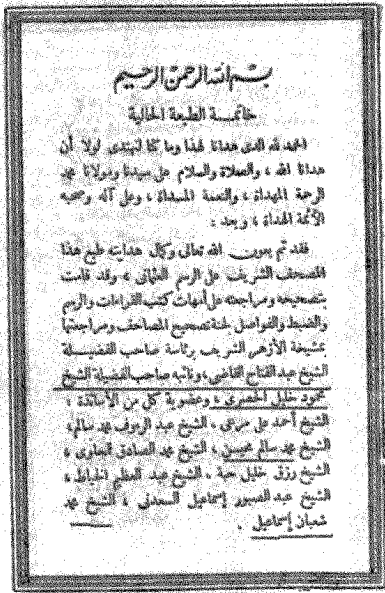 بسم الله الرحمن الرحيم
خاتمة الطبعة الحالية
الحمد لله الذى هدانا لهذا وما كنا لنهتدى لولا أن
هدانا الله ، والصلاة والسلام على سيدنا ومولانا محمد
الرحمة المهداة ، والنعمة المسداة ، وعلى آله وصحبه
الأئمة الهداة ، وبعد :
فقد تم بعون الله تعالى وكمال هدايته طبع هذا
المصحف الشريف على الرسم العثمانى ، وقد قامت
بتصحيحه ومراجعته على أمهات كتب القراءات والرسم
والضبط والفواصل لجنة تصحيح المصاحف ومراجعتها
بمشيخة الأزهر الشريف برئاسة صاحب الفضيلة
الشيخ عبد الفتاح القاضى ، ونائبه صاحب الفضيلة الشيخ
محمود خليل الحصرى ، وعضوية كل من الأساتذة :
الشيخ أحمد على مرعى ، الشيخ عبد الرءوف محمد سالم ،
الشيخ محمد سالم محيسن ، الشيخ محمد الصادق قمحاوى ،
الشيخ رزق خليل حبة ، الشيخ عبد العظيم الخياط ،
الشيخ عبد الصبور إسماعيل السعدنى ، الشيخ محمد
شعبان إسماعيل .